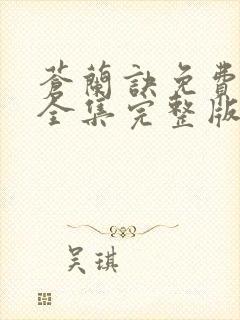 蒼蘭訣免費
全集完整版
吴琪